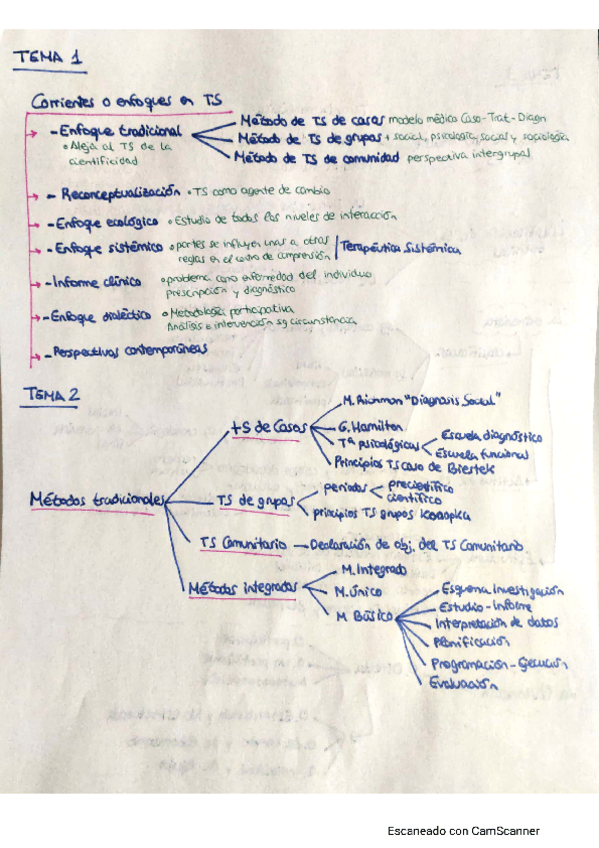 TEMA 1
Corrientes o enfoques en TS
- Enfoque tradicional
• Aleja al TS de la
cientificidad
Método de TS de casos modelo médico Caso-Trat-Diagn
Método de TS de grupos + social, psicología, social y sociología
Método de TS de comunidad perspectiva intergrupal
- Reconceptualización • TS como agente de cambio
- Enfoque ecológico • Estudio de todos los niveles de interacción
- Enfoque sistémico • partes se influyen unas a otras
reglas en el centro de comprensión
Terapéutica Sistémica
- Informe clínico • problema como enfermedad del individuo
prescripción y diagnóstico
- Enfoque dialéctico • Metodología participativa
Análisis e intervención sg circunstancia
- Perspectivas contemporáneas
TEMA 2
Métodos tradicionales
TS de Casos
M. Richmon "Diagnosis Social"
G. Hamilton
Tª psicológicas
Escuela diagnóstico
Escuela funcional
Principios TS caso de Biestek
TS de grupos
periodos
precientífico
científico
principios TS grupos Konopka
TS Comunitario - Declaración de obj. del TS Comunitario
Métodos integrados
M. Integrado
M. Único
M Básico
Esquema Investigación
Estudio - Informe
Interpretación de datos
Planificación
Programación - Ejecución
Evaluación
Escaneado con CamScanner